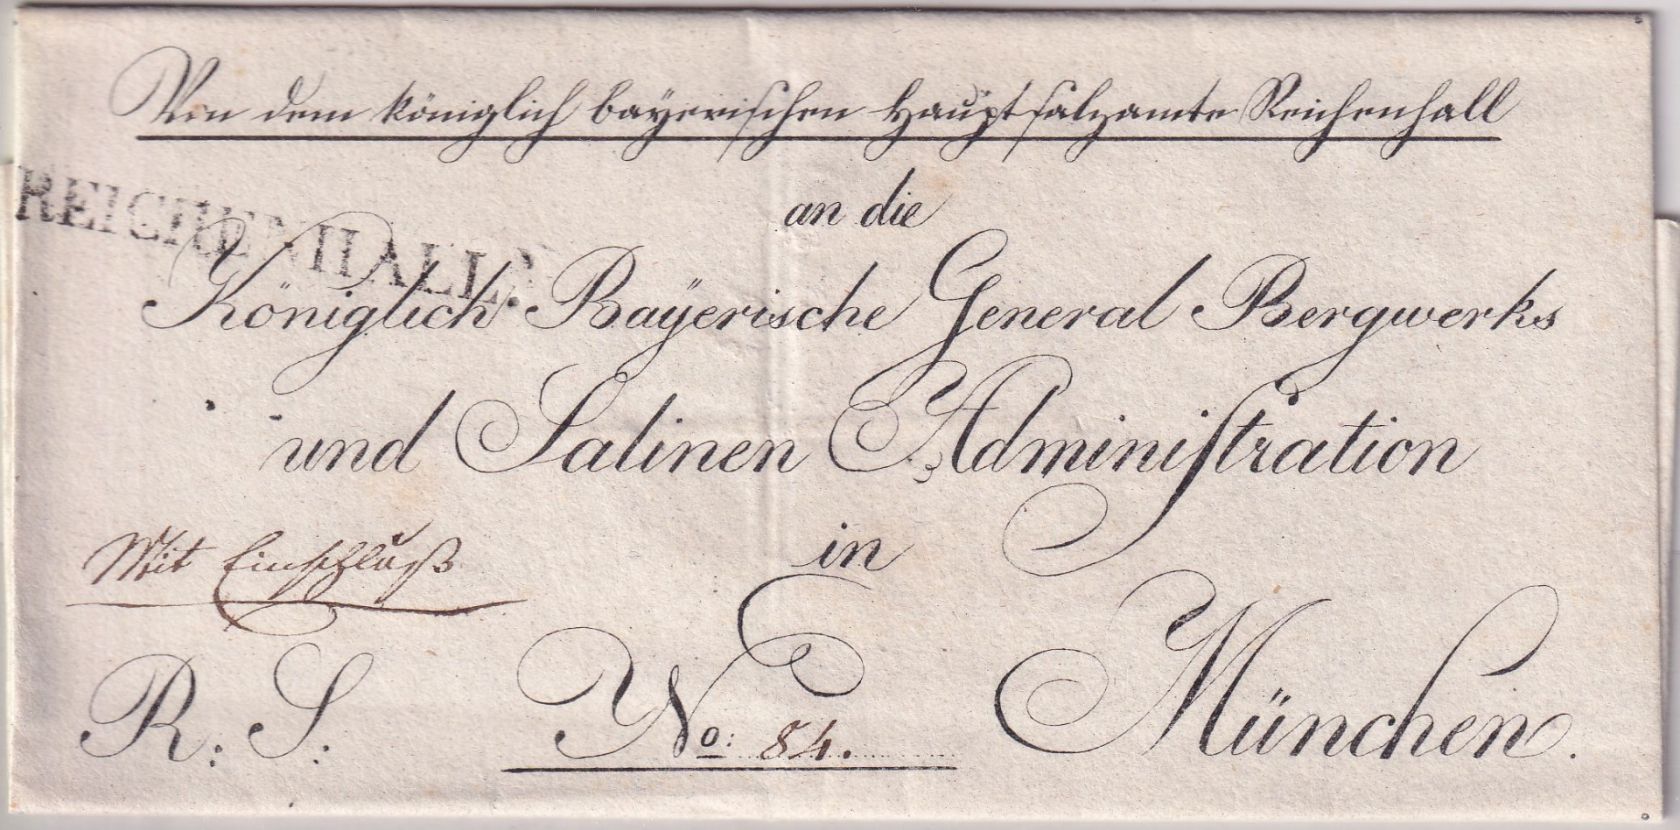 Von dem königlich bayerischen Hauptsalzamte Reichenhall
REICHENHALL.
an die
Königlich Bayerische General Bergwerks
und Salinen Adminiſtration
in
Mit Einschluß
München.
R: S: No: 84.